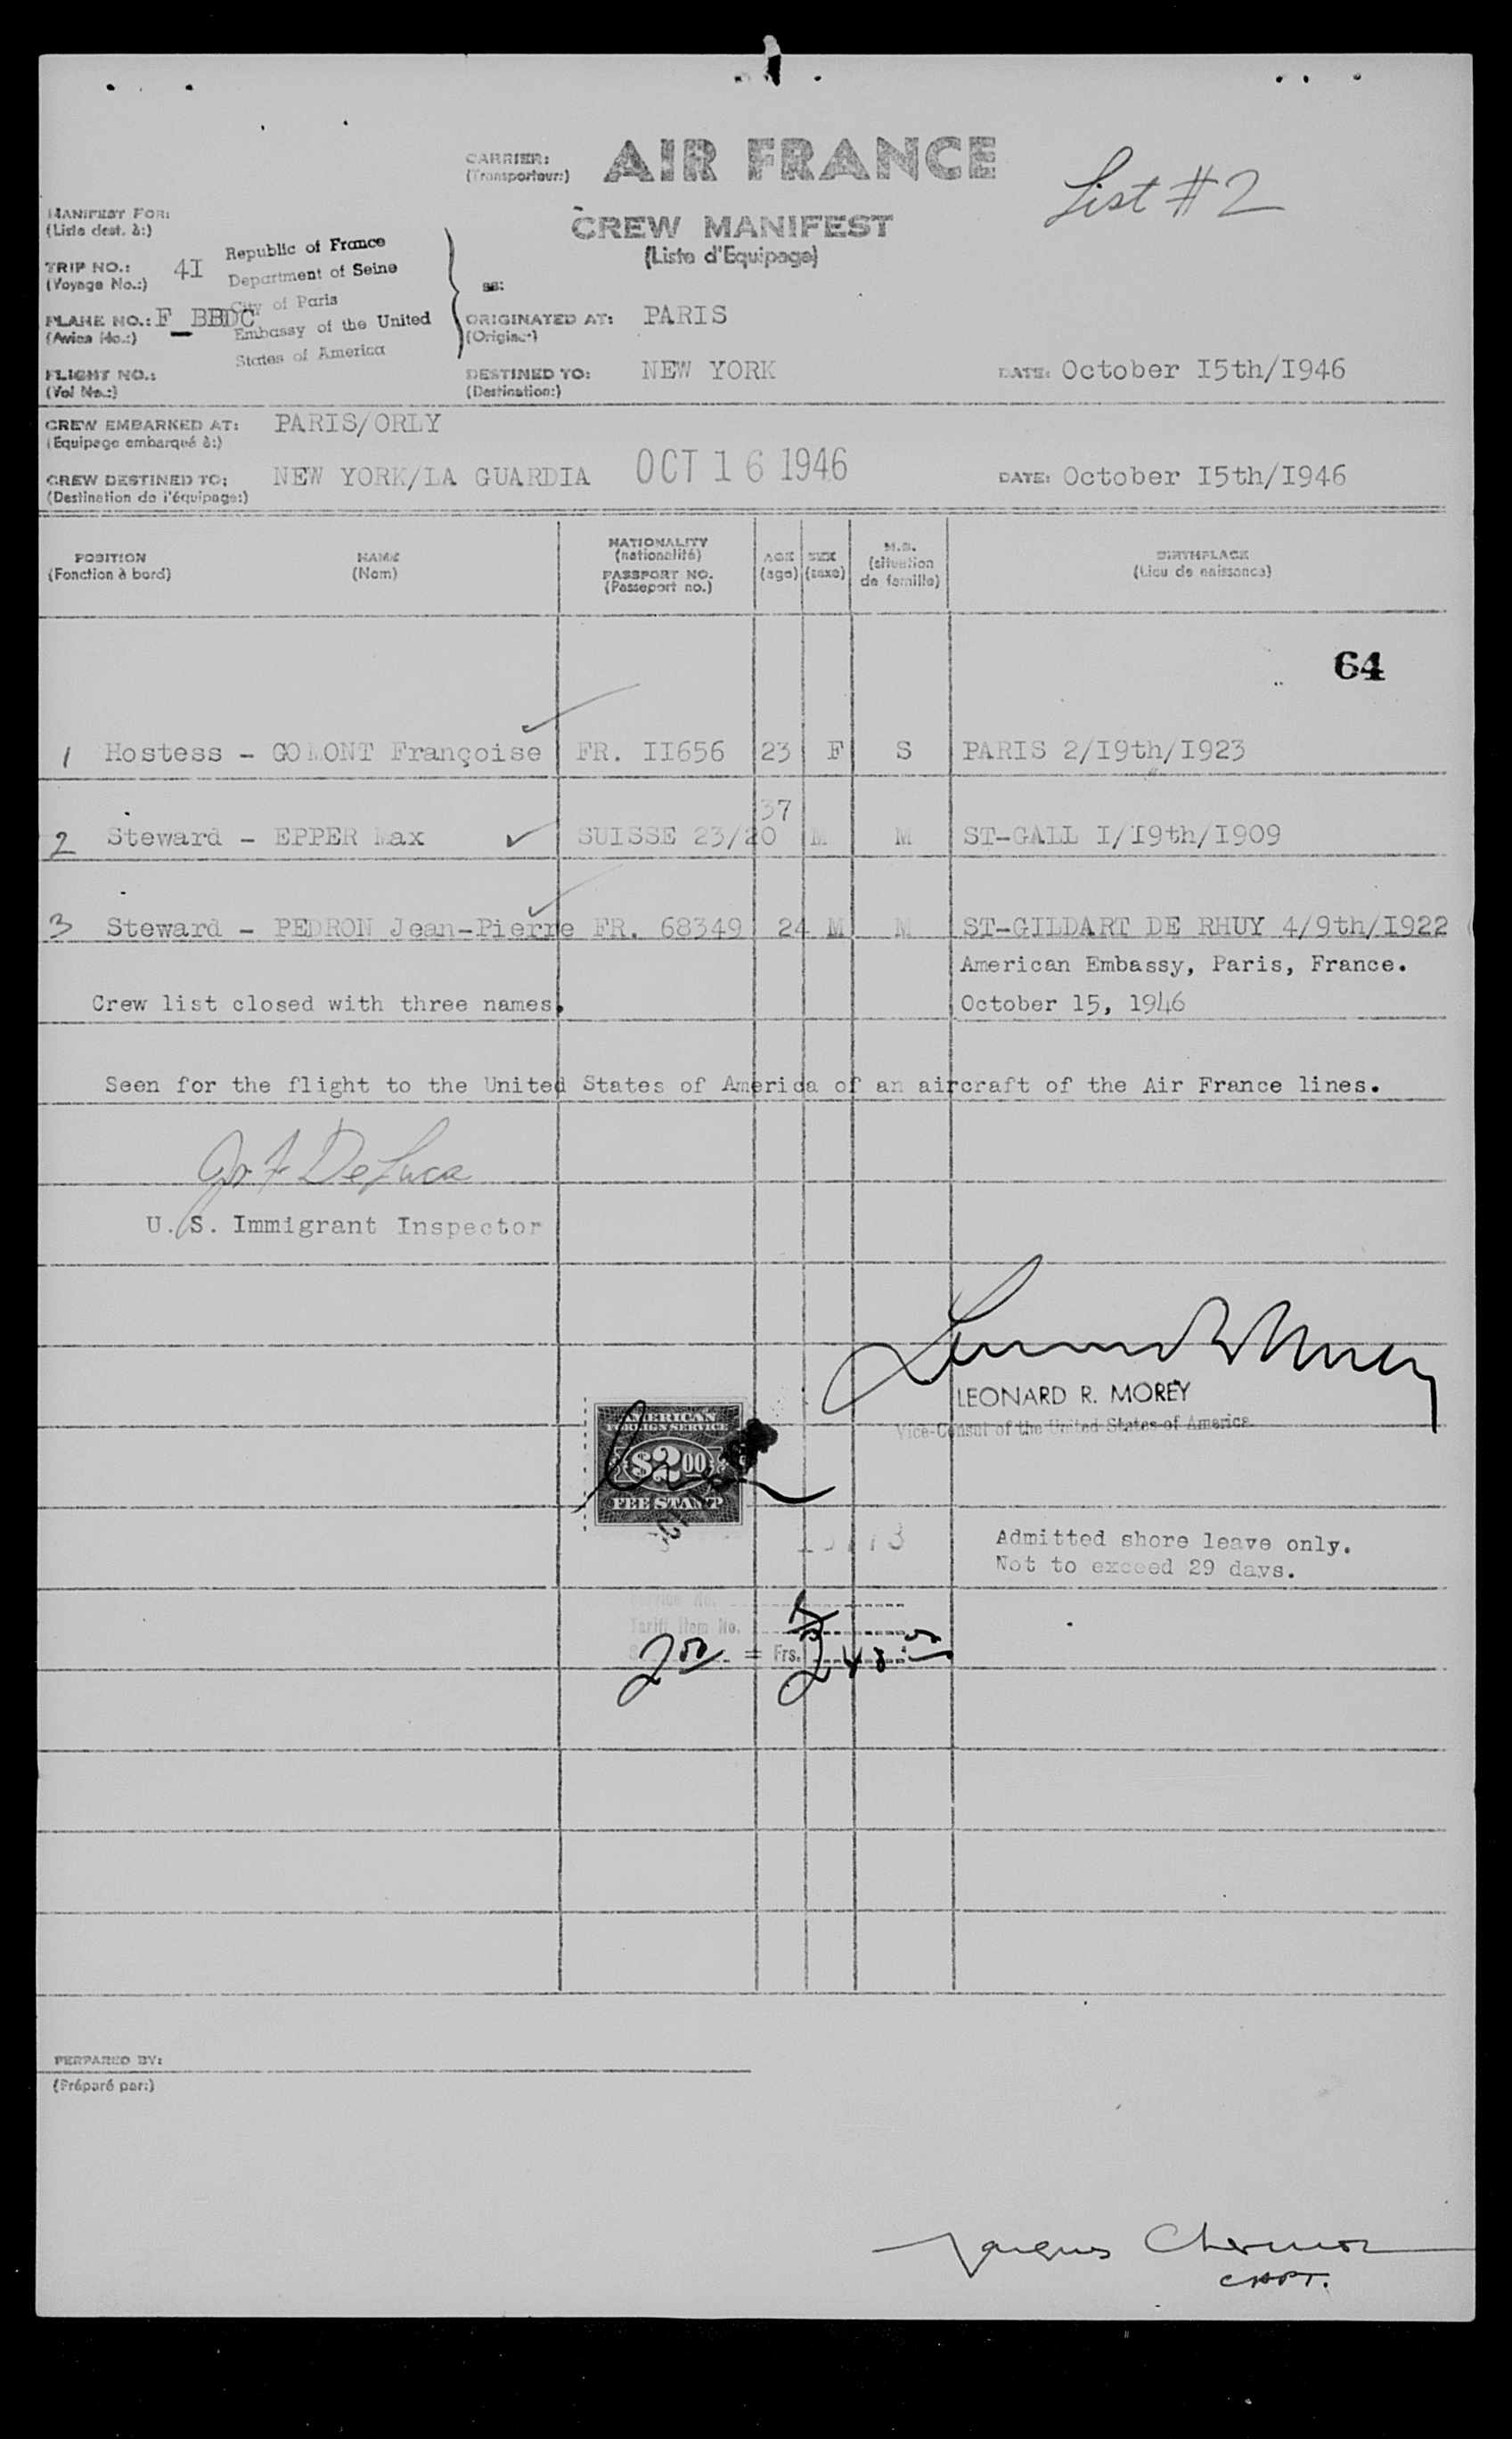 CARRIER: AIR FRANCE
(Transporteur:)
List #2
CREW MANIFEST
(Liste d'Equipage)
MANIFEST FOR:
(Liste dest. à:)
TRIP NO.: 4I
(Voyage No.:)
PLANE NO.: F_BBDC
(Avion No.:)
FLIGHT NO.:
(Vol No.:)
Republic of France
Department of Seine
City of Paris
Embassy of the United
States of America
ss:
ORIGINATED AT: PARIS
(Origine:)
DESTINED TO: NEW YORK
(Destination:)
DATE: October I5th/I946
CREW EMBARKED AT: PARIS/ORLY
(Equipage embarqué à:)
CREW DESTINED TO: NEW YORK/LA GUARDIA OCT 16 1946 DATE: October I5th/I946
(Destination de l'équipage:)
POSITION
(Fonction à bord)
NAME
(Nom)
NATIONALITY
(nationalité)
PASSPORT NO.
(Passeport no.)
AGE
(age)
SEX
(sexe)
M.S.
(situation
de famille)
BIRTHPLACE
(Lieu de naissance)
64
1 Hostess - GOMONT Françoise FR. II656 23 F S PARIS 2/I9th/I923
37
2 Steward - EPPER Max SUISSE 23/20 M M ST-GALL I/I9th/I909
3 Steward - PEDRON Jean-Pierre FR. 68349 24 M M ST-GILDART DE RHUY 4/9th/I922
American Embassy, Paris, France.
Crew list closed with three names. October 15, 1946
Seen for the flight to the United States of America of an aircraft of the Air France lines.
De Luca
U. S. Immigrant Inspector
LEONARD R. MOREY
Vice-Consul of the United States of America
AMERICAN
FOREIGN SERVICE
$2.00
FEE STAMP
Admitted shore leave only.
Not to exceed 29 days.
Service No.
Tariff Item No.
2.00 = Frs.
PERPARED BY:
(Préparé par:)
Jacques
CAPT.